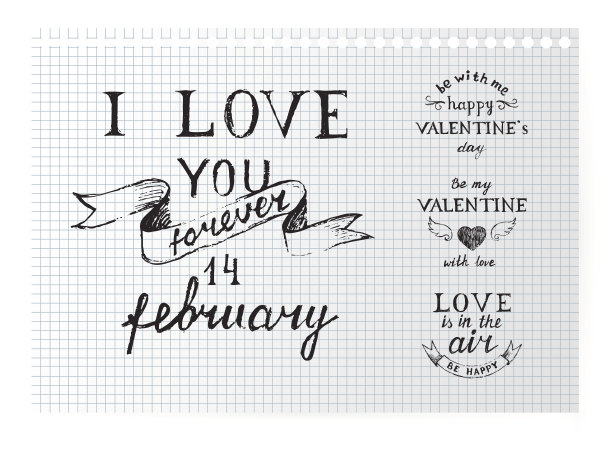 I LOVE
YOU
forever
14
february
be with me
happy
VALENTINE's
day
Be my
VALENTINE
with love
LOVE
is in the
air
BE HAPPY